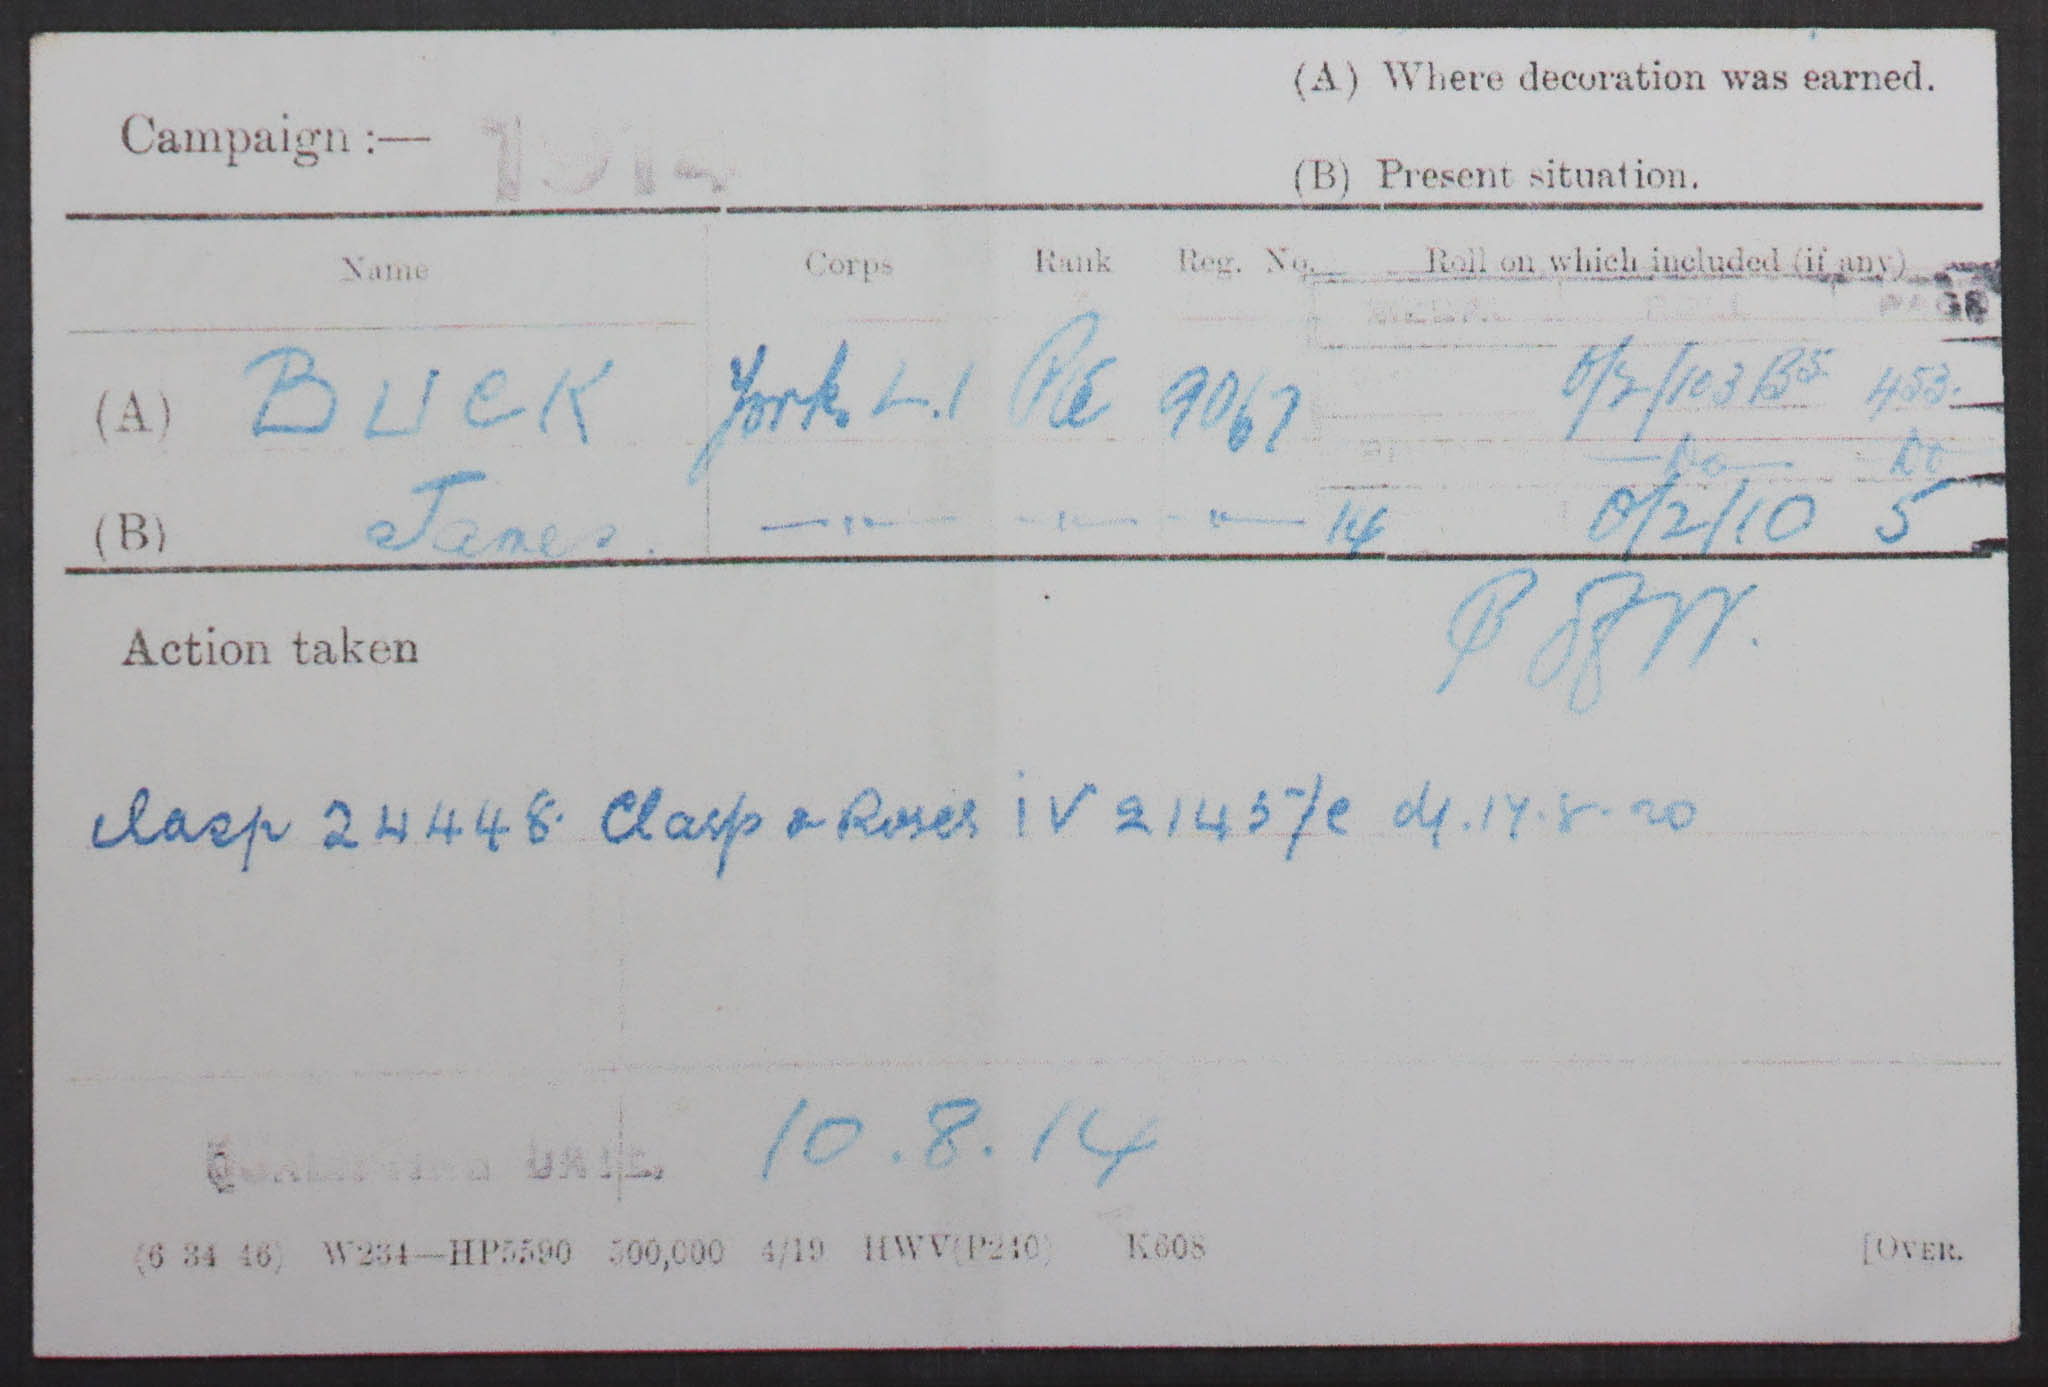 (A) Where decoration was earned.
Campaign :— 1914
(B) Present situation.
Name Corps Rank Reg. No. Roll on which included (if any)
MEDAL ROLL PAGE
(A) BUCK York. L.I Pte 9067 O/2/103B5 453.
—Do— Do
(B) James. —"— —"— —"— 14 O/2/10 5
Action taken P of W.
Clasp 24448. Clasp & Roses IV 2145/E dd. 17.8.20
QUALIFYING DATE. 10.8.14
(6 34 46) W234—HP5590 500,000 4/19 HWV(P240) K608 [OVER.